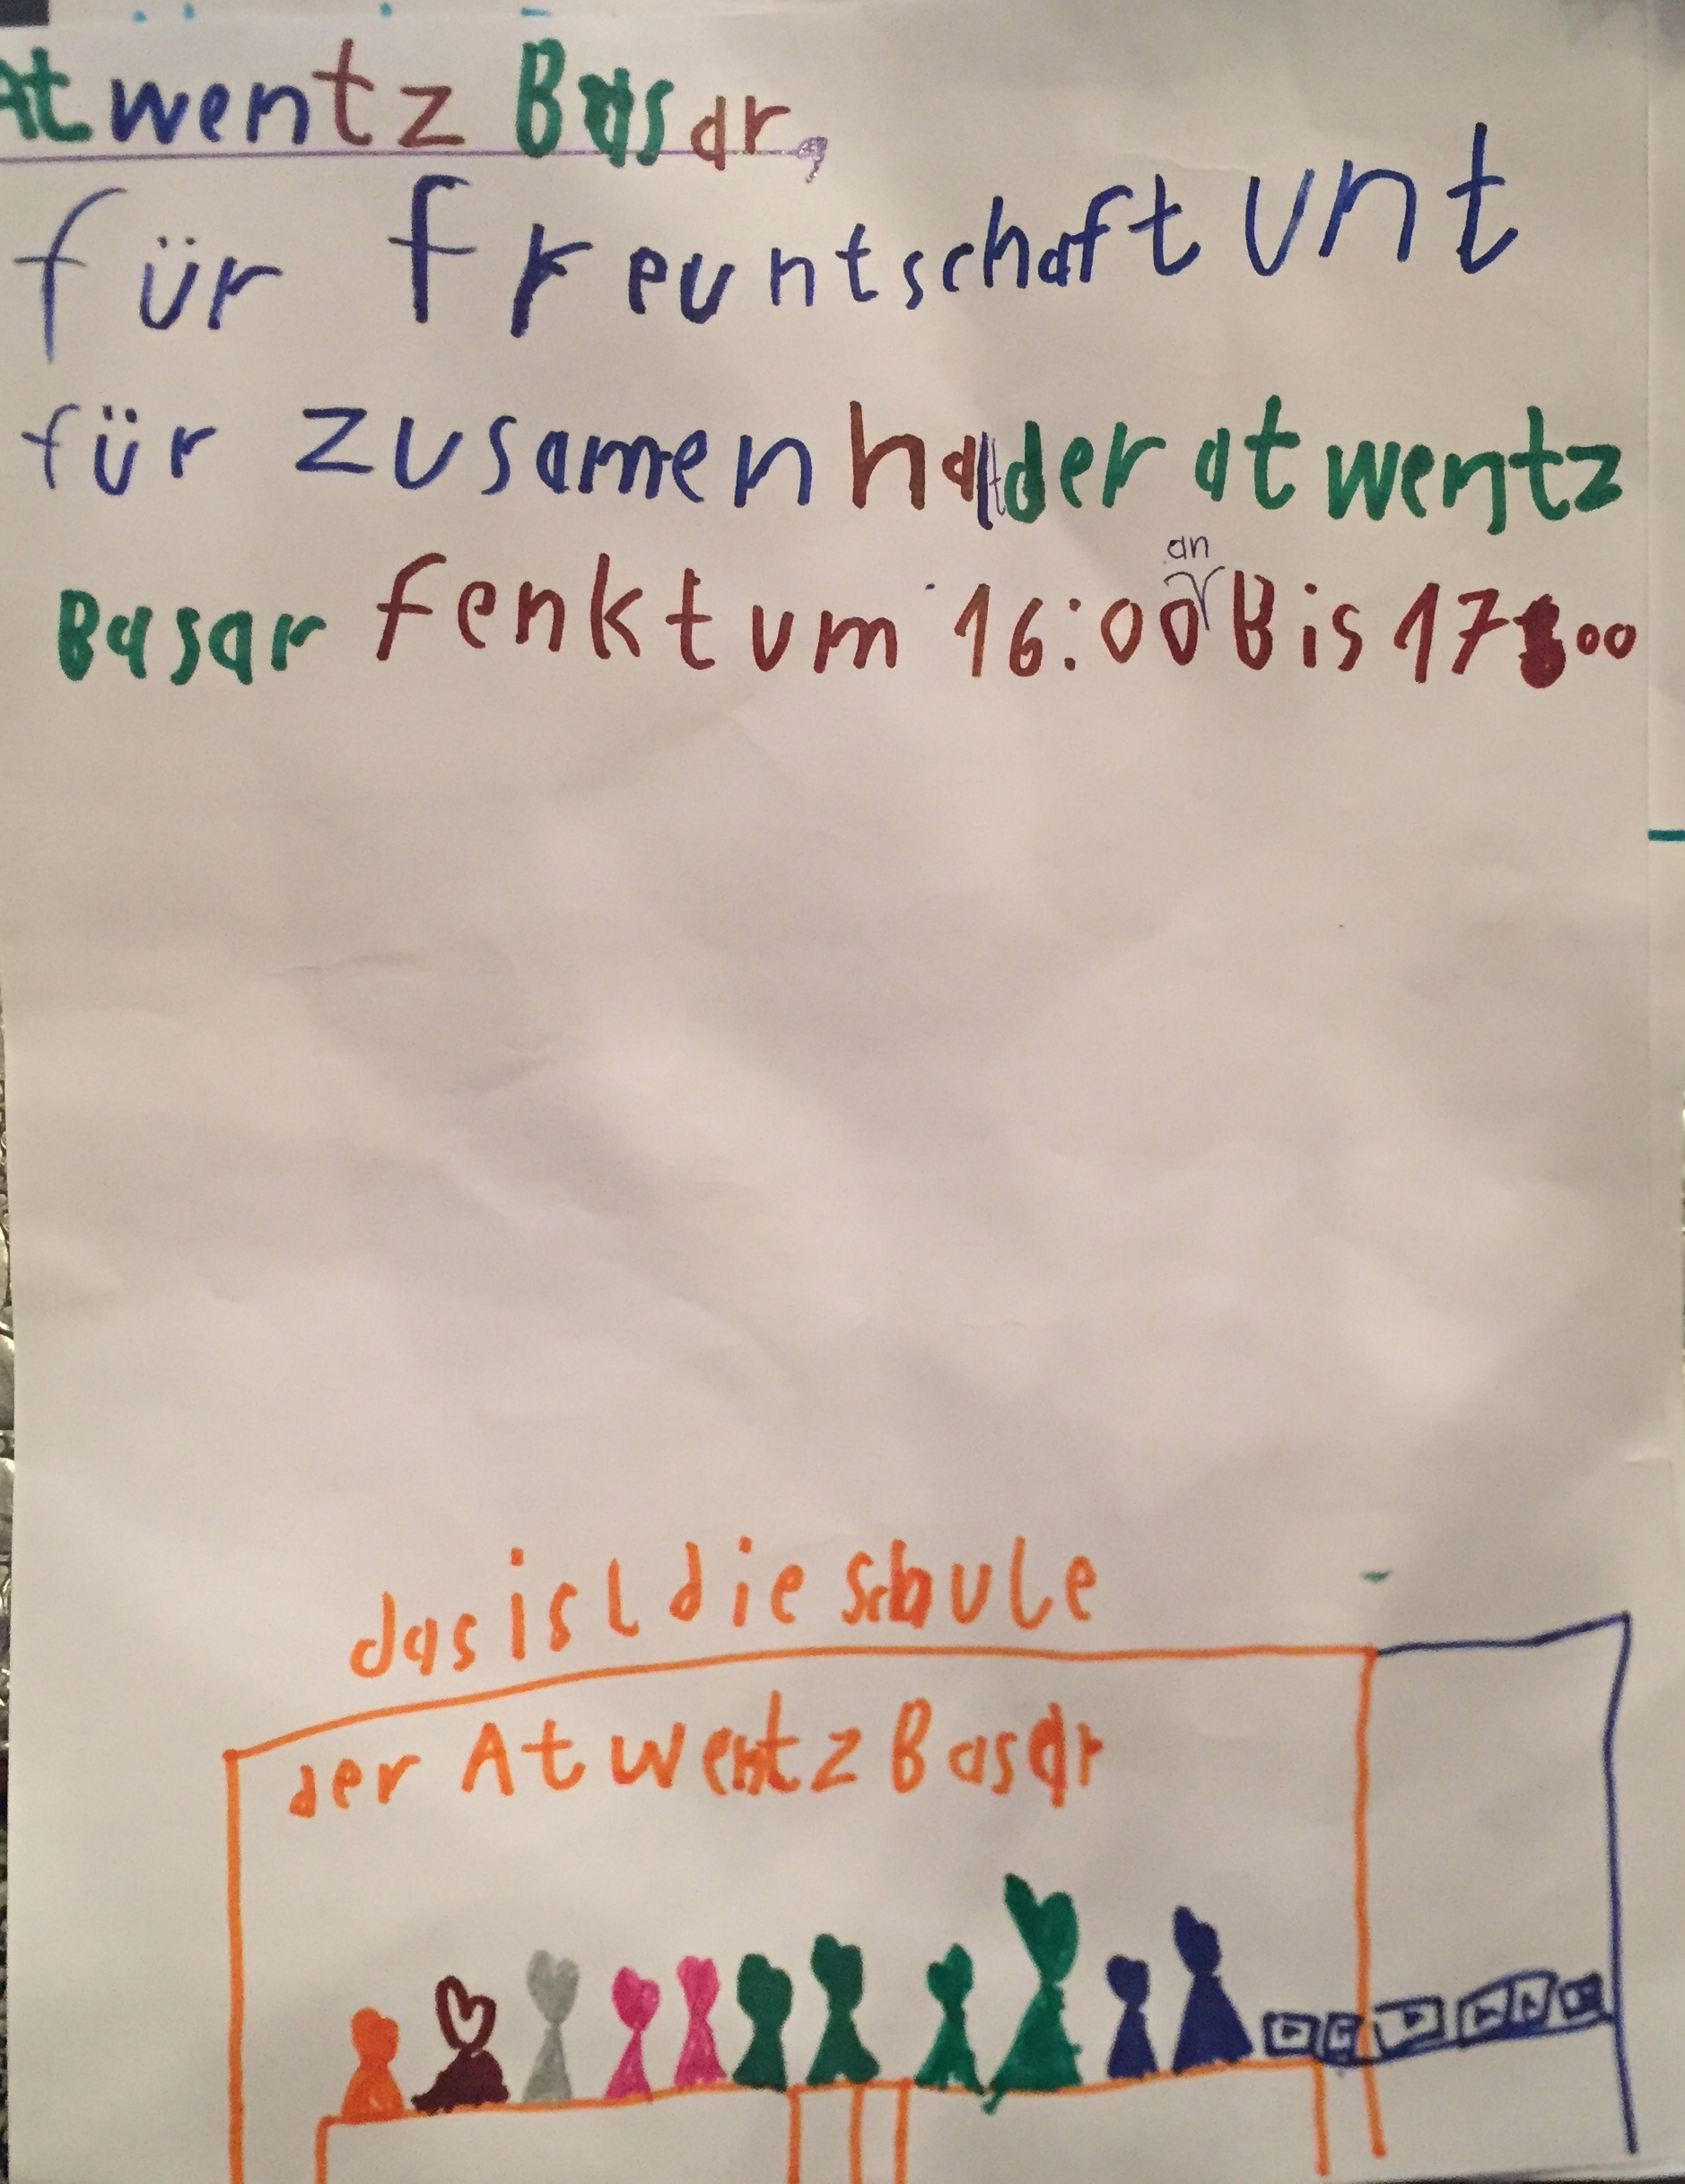 Atwentz Basar,
für freuntschaft unt
für zusamenhalt der atwentz
Basar fenkt um 16:00 an Bis 17:00
das ist die schule
der Atwentz Basar